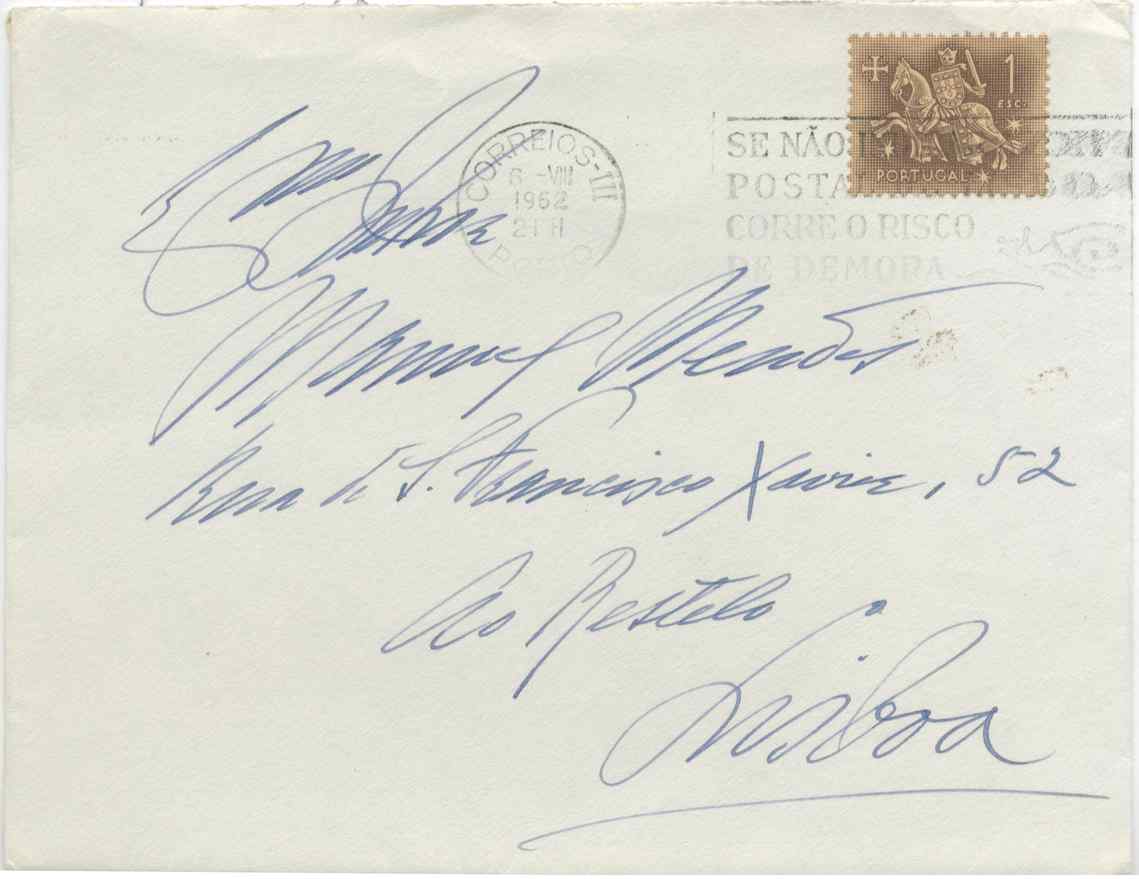 1
ESC.
PORTUGAL
CORREIOS-III
6 -VIII
1962
21 H
PORTO
SE NÃO
POSTA
CORRE O RISCO
DE DEMORA
Exmo Senhor
Manuel Mendes
Rua de S. Francisco Xavier, 52
Ao Restelo
Lisboa